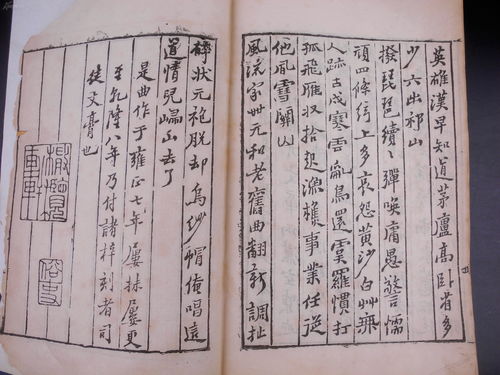 英雄漢早知道茅廬高臥省多
少六出祁山
撥琵琶續〻彈喚庸愚警懦
頑四條絃上多哀怨黃沙白艸無
人跡古戍寒雲亂鳥還虞羅慣打
孤飛雁収拾起漁樵事業任從
他風雪關山
風流家世元和老舊曲翻新調扯
碎状元袍脫却烏紗帽俺唱這
道情兒歸山去了
是曲作于雍正七年屢抹屢更
至乾隆八年乃付諸梓刻者司
徒文膏也
俗吏